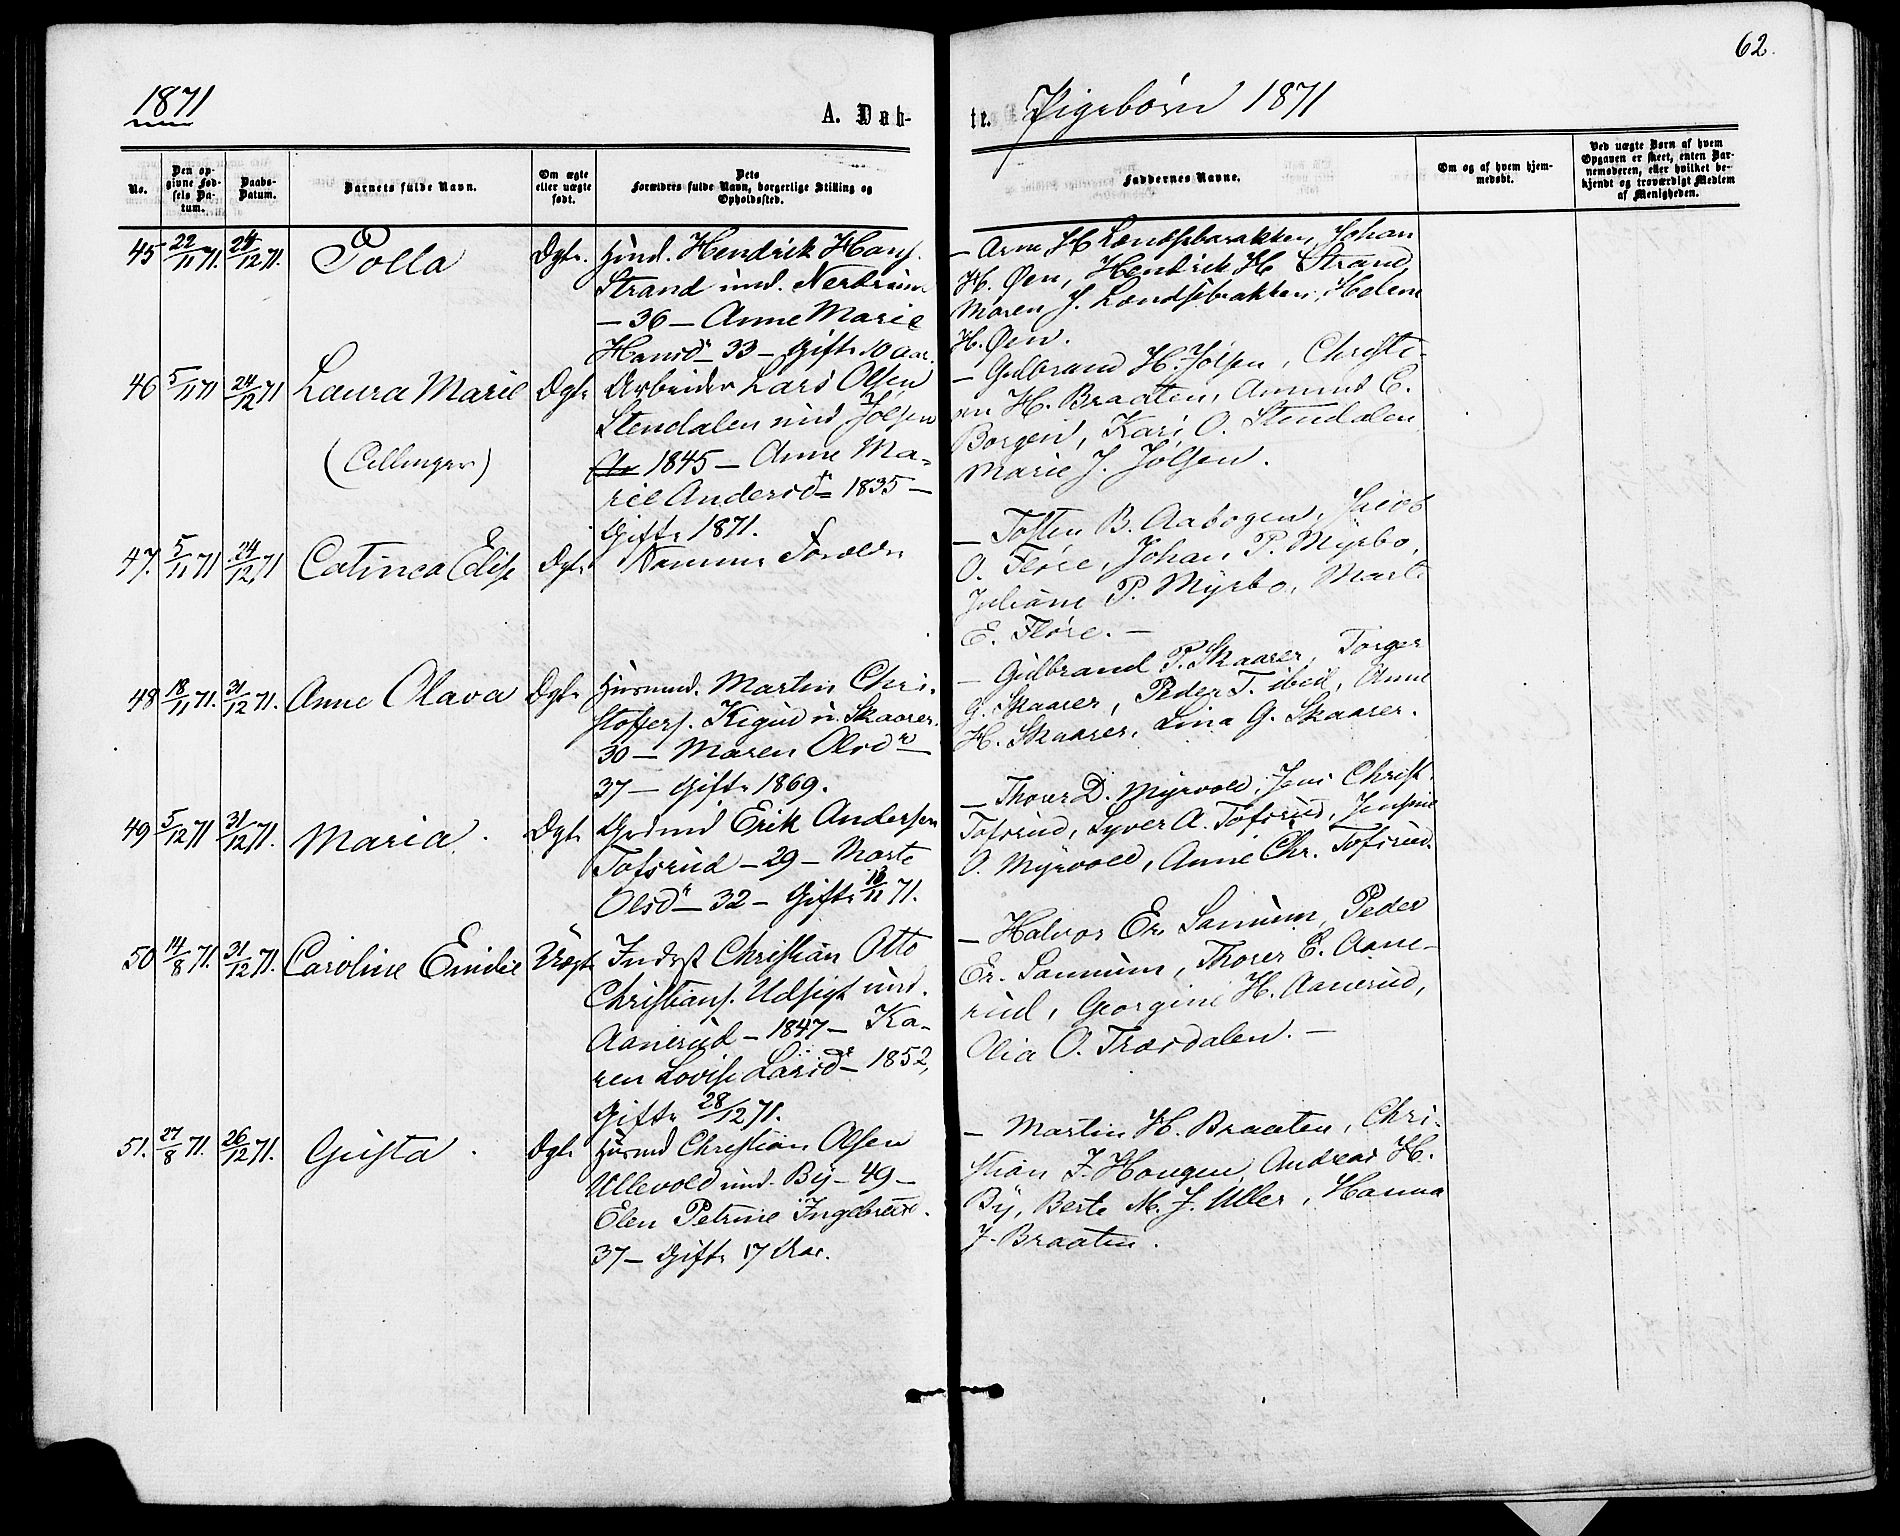 62.
1871
A. Døb-
te.
Pigebørn 1871
No.
Den op-
givne Fød-
sels Da-
tum.
Daabs-
Datum.
Barnets fulde Navn.
Om ægte
eller uægte
født.
Dets
Forældres fulde Navn, borgerlige Stilling og
Opholdssted.
Faddernes Navne.
Om og af hvem hjem-
medøbt.
Ved uægte Børn af hvem
Opgaven er skeet, enten Bar-
nemoderen, eller hvilket be-
kjendt og troværdigt Medlem
af Menigheden.
45 22/11 71. 24/12 71. Polla Ægte. Hendrik Hans.
Strand und.
– 36 – Anne Marie
Hansdr – 33 – Gifte 10 Aar.
– Arne H. Johan
H. Øen, Hendrik H. Strand
Maren J. Helene
H. Øen.
46 5/11 71 24/12 71 Laura Marie Ægte Arbeider Lars Olsen
(Tvillinger)
Stendalen und Jølsen
1845 – Anne Ma-
rie Andersdr – 1835 –
Gifte 1871.
– Gulbrand H. Jølsen, Christi-
an H. Braaten, Amund E.
Borgen, Kari O. Stendalen
Marie J. Jølsen.
47. 5/11 71 24/12 71 Catinca Elise Ægte Samme Forældre
– Tosten B. Aabogen, Jacob
O. Fløre, Johan P. Myrbo,
Juliane P. Myrbo, Marte
E. Fløre. –
48 18/11 71. 31/12 71. Anne Olava Ægte Husmd. Martin Chri-
stoffers. u. Skaarer.
30 – Maren Olsdr –
37 – Gifte 1869.
– Gulbrand P. Skaarer, Torger
G. Skaarer, Peder T. ibid, Anne
H. Skaarer, Lina G. Skaarer.
49 5/12 71 31/12 71. Maria. Ægte Erik Andersen
Tofsrud – 29 – Marte
Olsdr – 32 – Gifte 18/11 71.
– Thorer D. Myrvold, Jens Christ.
Tofsrud, Syver A. Tofsrud, Jensine
O. Myrvold, Anne Chr. Tofsrud.
50 14/8 71. 31/12 71. Caroline Emilie Uægte Inderst Christian Otto
Christians. Udsigt und.
Aanerud – 1847 – Ka-
ren Lovise Larsdr – 1852,
Gifte 28/12 71.
– Halvor Er. Sannum, Peder
Er. Sannum, Thorer E. Aane-
rud, Georgine H. Aanerud,
Olia O. Træsdalen. –
51. 27/8 71. 26/12 71. Gusta. Ægte Husmd Christian Olsen
Ullevold und. By – 49 –
Elen Petrine Ingebretsd.
37 – Gifte 17 Aar.
– Martin H. Braaten, Chri-
stian F. Haugen, Andreas H.
By, Berte M. J. Uller, Hanna
J. Braaten.